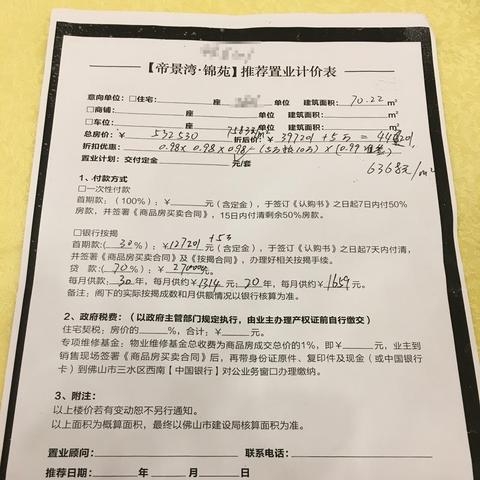 【帝景湾·锦苑】推荐置业计价表
意向单位：□住宅： 座 单位 建筑面积：70.22 m²
□商铺： 座 单位 建筑面积： m²
□车位： 座 单位 建筑面积： m²
总房价：￥ 532530 7583/m² 折后价：￥ 397201 +5万 = 447201
折扣优惠： 0.98 x 0.98 x 0.98 - (5万抵10万) x (0.99
6368元/m²
置业计划：交付定金 元/套
1、付款方式
□一次性付款
首期款：（100%）：￥ 元（含定金），于签订《认购书》之日起7日内付50%
房款，并签署《商品房买卖合同》，15日内付清剩余50%房款。
□银行按揭 +5万
首期款：（30%）：￥127201 元（含定金），于签订《认购书》之日起7天内付清，
并签署《商品房买卖合同》及《按揭合同》，办理好相关按揭手续。
贷 款：（70%）：￥270000元。
每月供款：30年，每月供款约￥1314元；20年，每月供约￥1659元。
备注：阁下的实际按揭成数和月供额情况以银行核算为准。
2、政府税费：（以政府主管部门规定执行，由业主办理产权证前自行缴交）
住宅契税：房价的 %，合计：￥ 元。
专项维修基金：物业维修基金总收费为商品房成交总价的1%，即￥ 元，业主到
销售现场签署《商品房买卖合同》后，再带身份证原件、复印件及现金（或中国银行
卡）到佛山市三水区西南【中国银行】对公业务窗口办理缴纳。
3、附注：
以上楼价若有变动恕不另行通知。
以上面积为概算面积，最终以佛山市建设局核算面积为准。
置业顾问： 联系电话：
推荐日期： 年 月 日